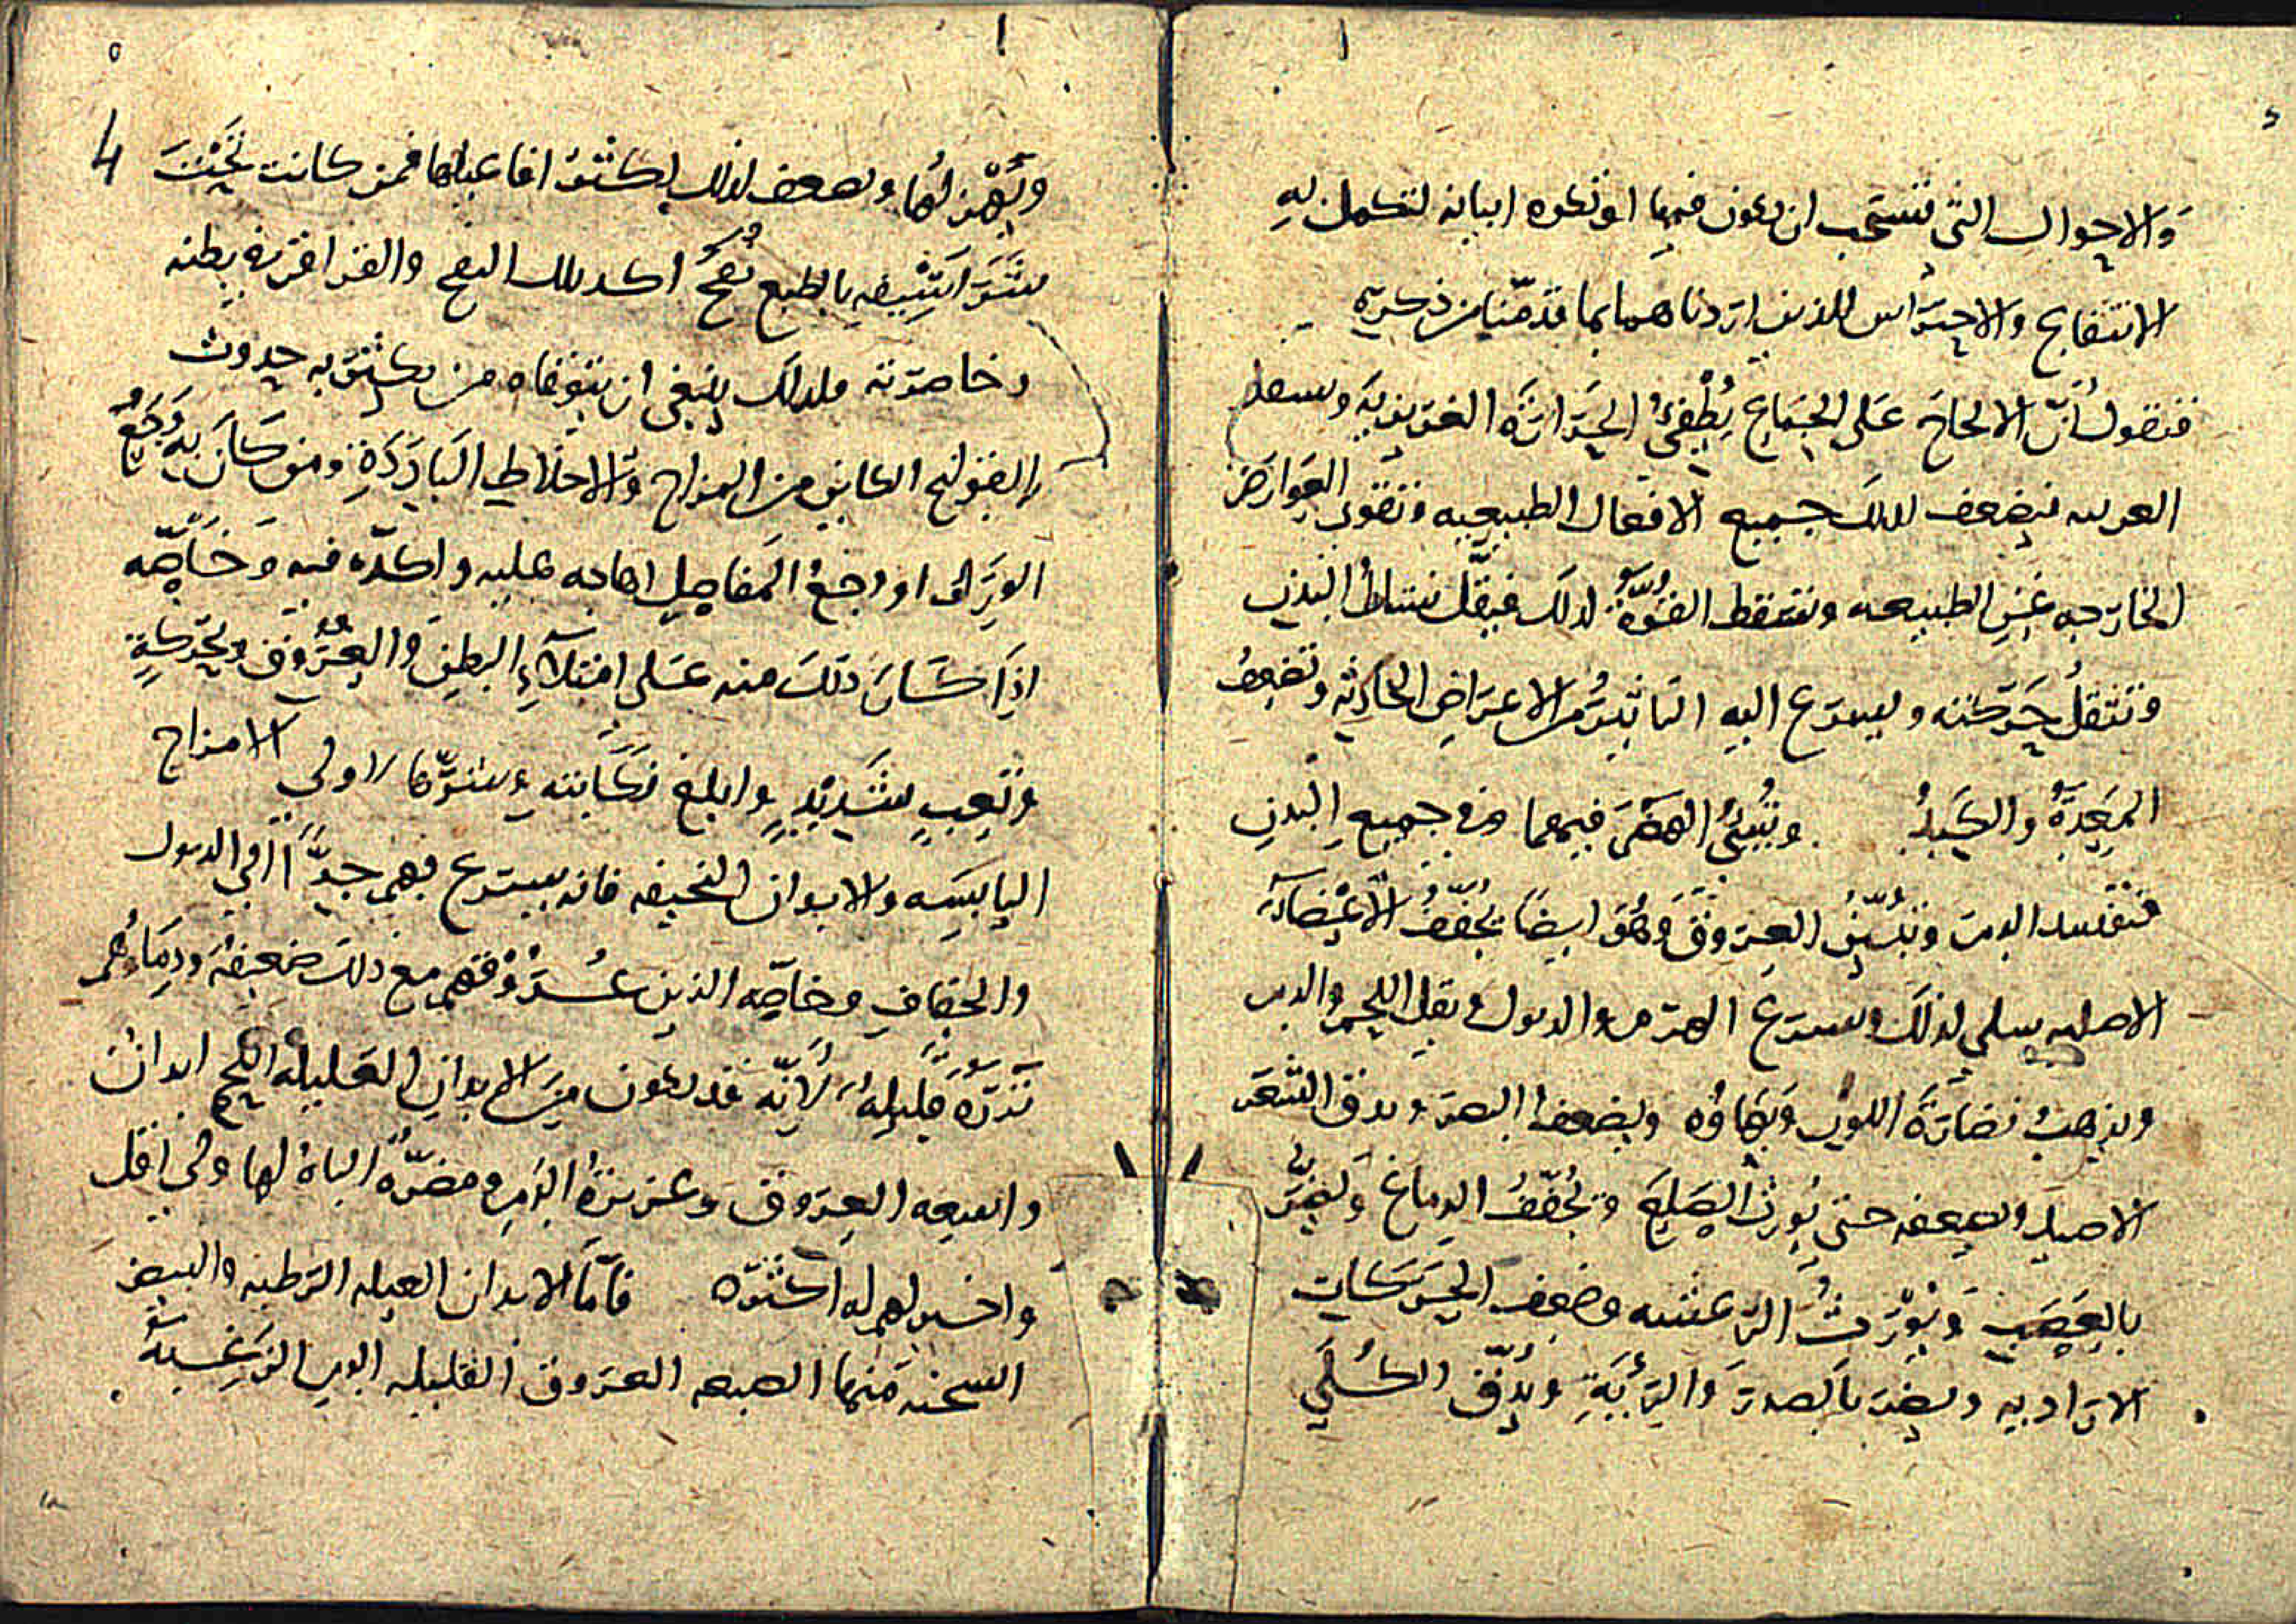 والاحوال التي تستحب ان يكون فيها او تكره ابيانه لتكمل به
الانتفاع والاحتراس اللذين اردناهما بما قدمنا من ذكره
فنقول انّ الالحاح على الجماع يُطفئ الحرارة الغريزيه ويسعل
الغريبه فيضعف لذلك جميع الافعال الطبيعيه وتقوى العوارض
الخارجه عن الطبيعه وتسقط القوّة لذلك فيقلّ نشاط البدن
وتثقل حركته ويسرع اليه التاثير من الاعراض الحادثه وتضعف
المعدة والكبد ويسئ الهضم فيهما وفي جميع البدن
فيفسد الدم العروق وهو ايضا يجفف الاعضاء
الاصليه لذلك ويسرع الهرم والذبول ويقل اللحم والدم
ويذهب نضارة اللون وبهاؤه ويضعف البصر ويدق الشعر
الاصيل ويضعفه حتى يورث الصلع ويجفف الدماغ ويضرّ
بالعصب ويورث الرعشه وضعف الحركات
الاراديه ويضر بالصدر والريه ويدقّ الكلى
٥
4
ويهزلها ويضعف لذلك اكثر افاعيلها فمن كانت تحت
شراسيفه بالطبع نفخ اكد ذلك النفخ والقراقر في بطنه
وخاصرته ولذلك ينبغي ان يتوقاه من يكثر به حدوث
القولنج الكاين من المزاج والاخلاط الباردة ومن كان به وجع
الورك او وجع المفاصل اهاجه عليه واكدّه فيه وخاصّه
اذا كان ذلك منه على امتلاء البطن والعروق وبحركة
وتعب شديد وابلغ نكايته وشرّها لاولي الامزاج
اليابسه والابدان النحيفه فانه يسرع بهم جدّا الى الذبول
والجفاف وخاصّه الذين عروقهم مع ذلك ضعيفه ودماؤهم
نزرة قليله لانّه قد يكون من الابدان القليله اللحم ابدان
واسعه العروق وغزيرة الدم ومضرّة الباه لها ولي اقل
واخبر لهم له اكثره فامّا الابدان العبله الرطبه والبيض
السحنه منها الضيقه العروق القليله الدم الزعبة